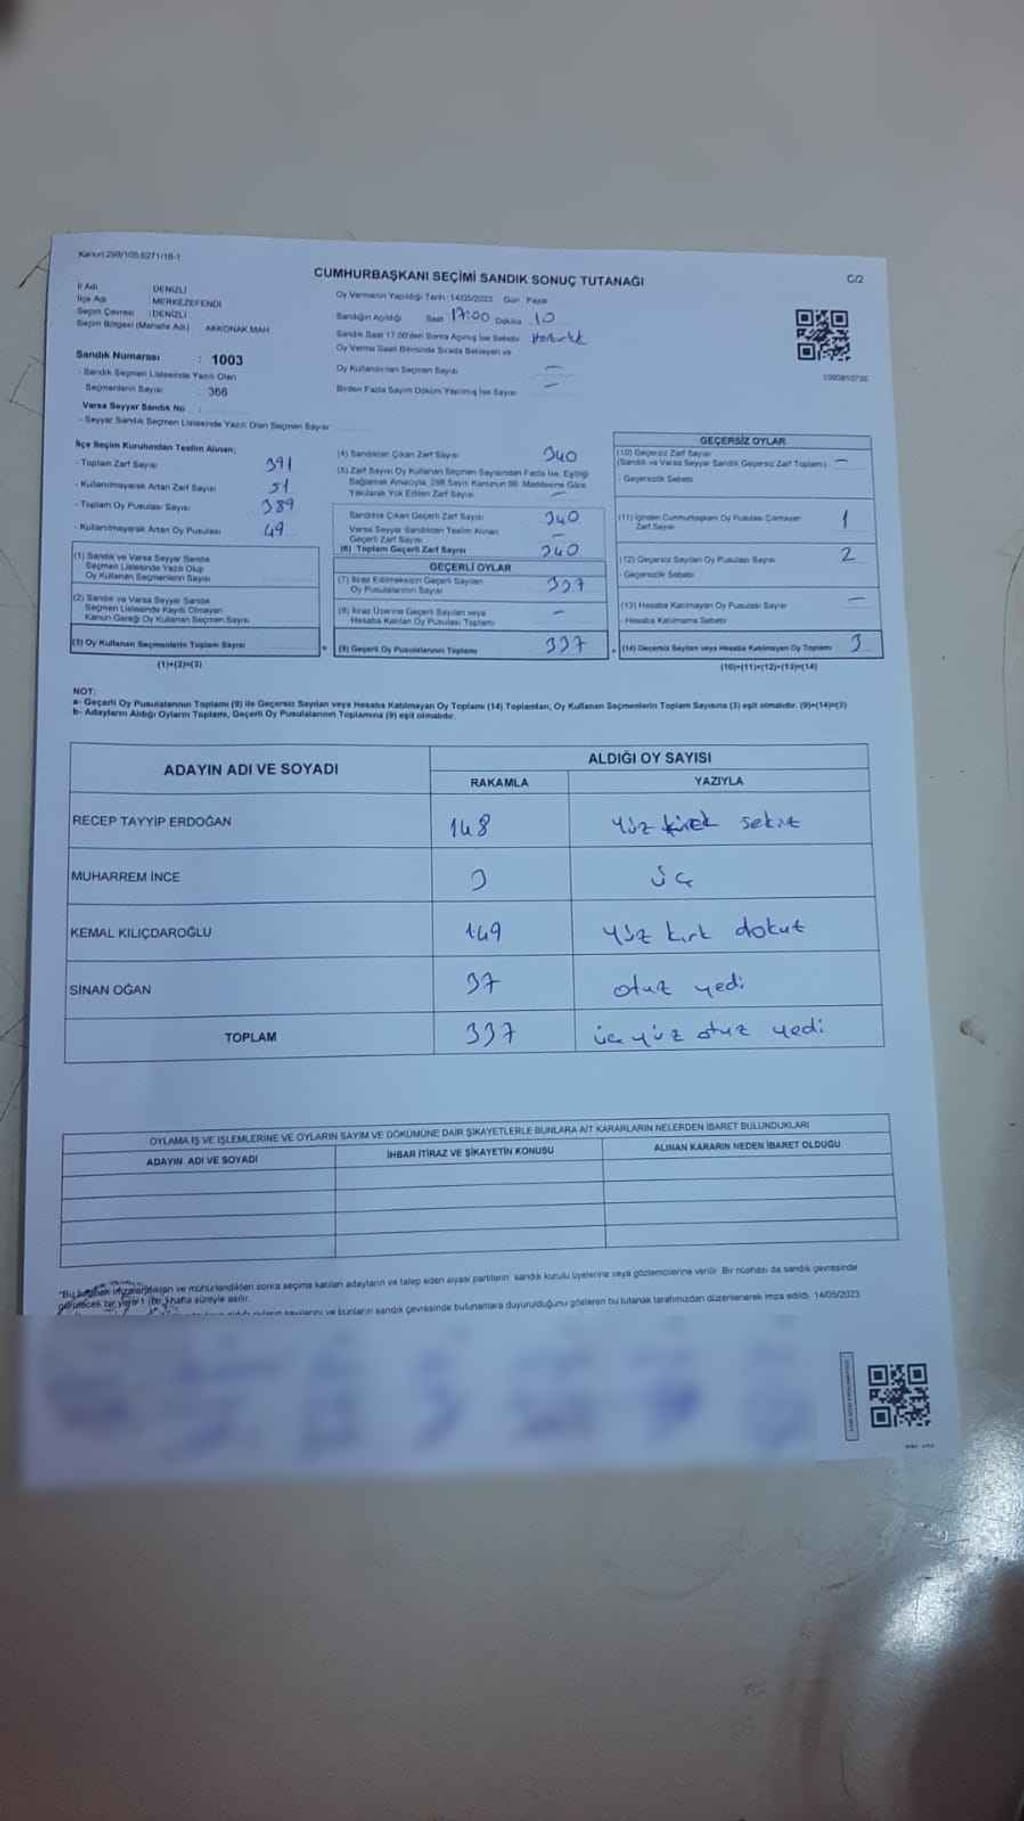 Kanun:298/105,6271/18-1
CUMHURBAŞKANI SEÇİMİ SANDIK SONUÇ TUTANAĞI
C/2
İl Adı : DENİZLİ
İlçe Adı : MERKEZEFENDİ
Seçim Çevresi : DENİZLİ
Seçim Bölgesi (Mahalle Adı) : AKKONAK MAH.
Sandık Numarası : 1003
- Sandık Seçmen Listesinde Yazılı Olan
Seçmenlerin Sayısı : 366
Varsa Seyyar Sandık No :
- Seyyar Sandık Seçmen Listesinde Yazılı Olan Seçmen Sayısı
Oy Vermenin Yapıldığı Tarih: 14/05/2023 Gün: Pazar
Sandığın Açıldığı Saat 17:00 Dakika 10
Sandık Saat 17.00'den Sonra Açılmış İse Sebebi
Oy Verme Saati Bitiminde Sırada Bekleyen ve
Oy Kullandırılan Seçmen Sayısı —
Birden Fazla Sayım Döküm Yapılmış İse Sayısı —
İlçe Seçim Kurulundan Teslim Alınan;
- Toplam Zarf Sayısı 391
- Kullanılmayarak Artan Zarf Sayısı 51
- Toplam Oy Pusulası Sayısı 389
- Kullanılmayarak Artan Oy Pusulası 49
(1) Sandık ve Varsa Seyyar Sandık
Seçmen Listesinde Yazılı Olup
Oy Kullanan Seçmenlerin Sayısı
(2) Sandık ve Varsa Seyyar Sandık
Seçmen Listesinde Kaydı Olmayan
Kanun Gereği Oy Kullanan Seçmen Sayısı
(3) Oy Kullanan Seçmenlerin Toplam Sayısı
(1)+(2)=(3)
(4) Sandıktan Çıkan Zarf Sayısı 340
(5) Zarf Sayısı Oy Kullanan Seçmen Sayısından Fazla İse, Eşitliği
Sağlamak Amacıyla, 298 Sayılı Kanunun 98. Maddesine Göre
Yakılarak Yok Edilen Zarf Sayısı —
Sandıkta Çıkan Geçerli Zarf Sayısı 340
Varsa Seyyar Sandıktan Teslim Alınan
Geçerli Zarf Sayısı —
(6) Toplam Geçerli Zarf Sayısı 340
GEÇERLİ OYLAR
(7) İtiraz Edilmeksizin Geçerli Sayılan
Oy Pusulalarının Sayısı 337
(8) İtiraz Üzerine Geçerli Sayılan veya
Hesaba Katılan Oy Pusulası Toplamı —
(9) Geçerli Oy Pusulalarının Toplamı 337
GEÇERSİZ OYLAR
(10) Geçersiz Zarf Sayısı
(Sandık ve Varsa Seyyar Sandık Geçersiz Zarf Toplamı) —
- Geçersizlik Sebebi
(11) İçinden Cumhurbaşkanı Oy Pusulası Çıkmayan
Zarf Sayısı 1
(12) Geçersiz Sayılan Oy Pusulası Sayısı 2
- Geçersizlik Sebebi
(13) Hesaba Katılmayan Oy Pusulası Sayısı —
- Hesaba Katılmama Sebebi
(14) Geçersiz Sayılan veya Hesaba Katılmayan Oy Toplamı 3
(10)+(11)+(12)+(13)=(14)
NOT:
a- Geçerli Oy Pusulalarının Toplamı (9) ile Geçersiz Sayılan veya Hesaba Katılmayan Oy Toplamı (14) Toplamları, Oy Kullanan Seçmenlerin Toplam Sayısına (3) eşit olmalıdır. (9)+(14)=(3)
b- Adayların Aldığı Oyların Toplamı, Geçerli Oy Pusulalarının Toplamına (9) eşit olmalıdır.
ADAYIN ADI VE SOYADI
ALDIĞI OY SAYISI
RAKAMLA YAZIYLA
RECEP TAYYİP ERDOĞAN 148 yüz kırk sekiz
MUHARREM İNCE 3 üç
KEMAL KILIÇDAROĞLU 149 yüz kırk dokuz
SİNAN OĞAN 37 otuz yedi
TOPLAM 337 üç yüz otuz yedi
OYLAMA İŞ VE İŞLEMLERİNE VE OYLARIN SAYIM VE DÖKÜMÜNE DAİR ŞİKAYETLERLE BUNLARA AİT KARARLARIN NELERDEN İBARET BULUNDUKLARI
ADAYIN ADI VE SOYADI
İHBAR İTİRAZ VE ŞİKAYETİN KONUSU
ALINAN KARARIN NEDEN İBARET OLDUĞU
ve mühürlendikten sonra seçime katılan adayların ve talep eden siyasi partilerin sandık kurulu üyelerine veya gözlemcilerine verilir. Bir nüshası da sandık çevresinde
hafta süreyle asılır.
sayılarını ve bunların sandık çevresinde bulunanlara duyurulduğunu gösteren bu tutanak tarafımızdan düzenlenerek imza edildi. 14/05/2023